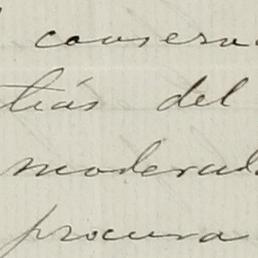 conserv
tiás del
moderad
procura